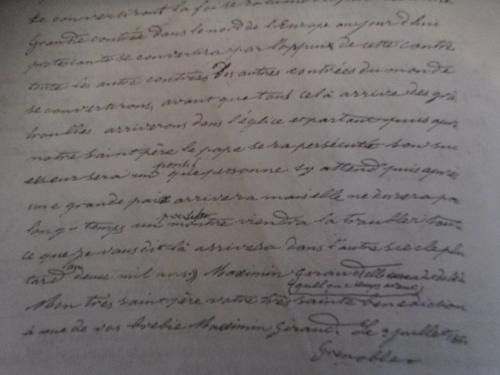 te convertiront la foi se
Grande contrée dans le nord de l'Europe aujourd'hui
protestante se convertira par l'appui de cette contre
toute les autre contrées des autres contrées du monde
se convertirons, avant que tout cela arrive des gra
troubles arriverons dans l'église et partout puis apr
notre Saint père le pape sera persécuté son suc
esseur sera un pontif que personne sy attend puis après
une grande paix arrivera mais elle ne durera pa
long-temps un monstre viendra la troubler tou
ce que je vous dit là arrivera dans l'autre siecle plu
tard deux mil ans Maximin Giraud
(quelque temps avant)
Mon très saint père votre très sainte bénédiction
à une de vos brebie Maximin Giraud le 3 juillet 185
Grenoble